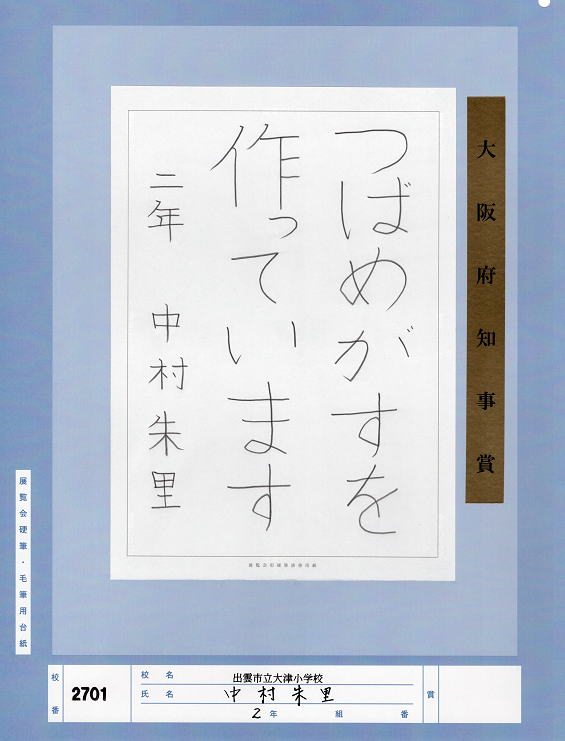 大阪府知事賞
つばめがすを
作っています
二年 中村朱里
展覧会硬筆・毛筆用台紙
校番 2701
校名 出雲市立大津小学校
氏名 中村朱里
2年 組 番
賞